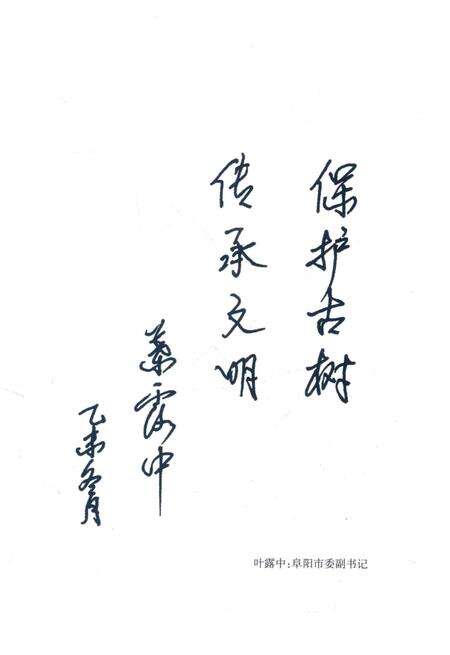 保护古树
传承文明
葉露中
乙未冬月
叶露中：阜阳市委副书记